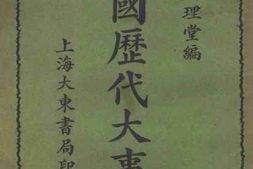 理堂編
國歷代大事
上海大東書局印